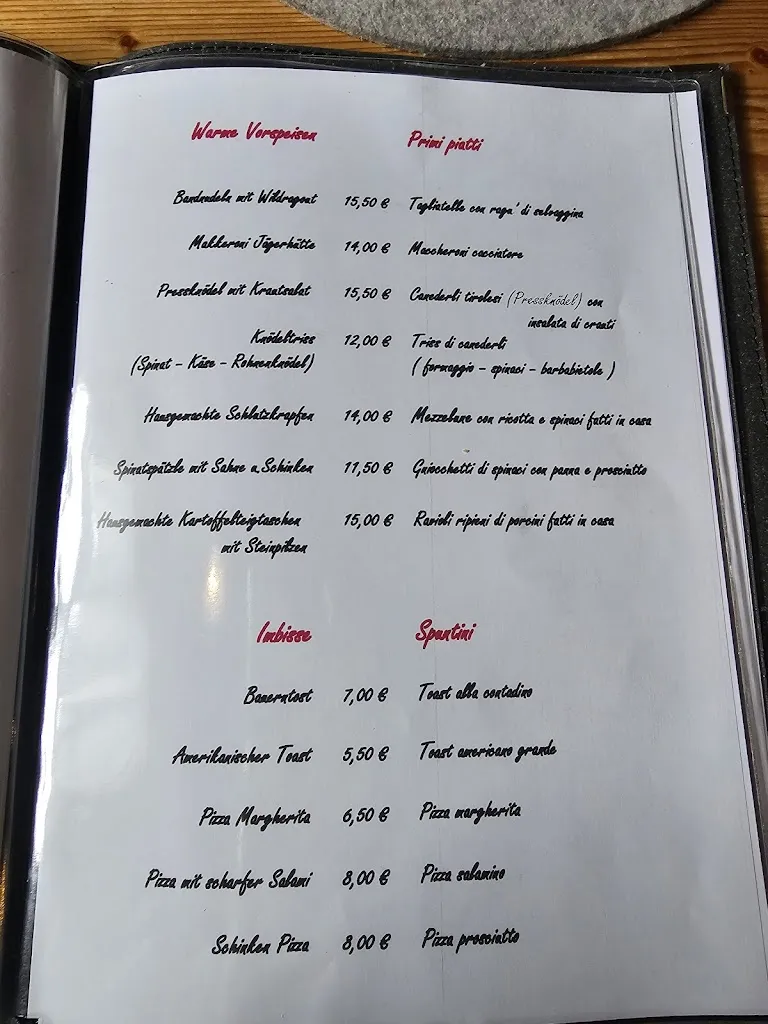 Warme Vorspeisen Primi piatti
Bandnudeln mit Wildragout 15,50 € Tagliatelle con ragu' di selvaggina
Makkeroni Jägerhütte 14,00 € Maccheroni cacciatore
Pressknödel mit Krautsalat 15,50 € Canederli tirolesi (Pressknödel) con
insalata di crauti
Knödeltriss 12,00 € Triss di canederli
(Spinat - Käse - Rohnenknödel) ( formaggio - spinaci - barbabietole )
Hausgemachte Schlutzkrapfen 14,00 € Mezzelune con ricotta e spinaci fatti in casa
Spinatspätzle mit Sahne u.Schinken 11,50 € Gniocchetti di spinaci con panna e prosciutto
Hausgemachte Kartoffelteigtaschen 15,00 € Ravioli ripieni di porcini fatti in casa
mit Steinpilzen
Imbisse Spuntini
Bauerntost 7,00 € Toast alla contadino
Amerikanischer Toast 5,50 € Toast americano grande
Pizza Margherita 6,50 € Pizza margherita
Pizza mit scharfer Salami 8,00 € Pizza salamino
Schinken Pizza 8,00 € Pizza prosciutto